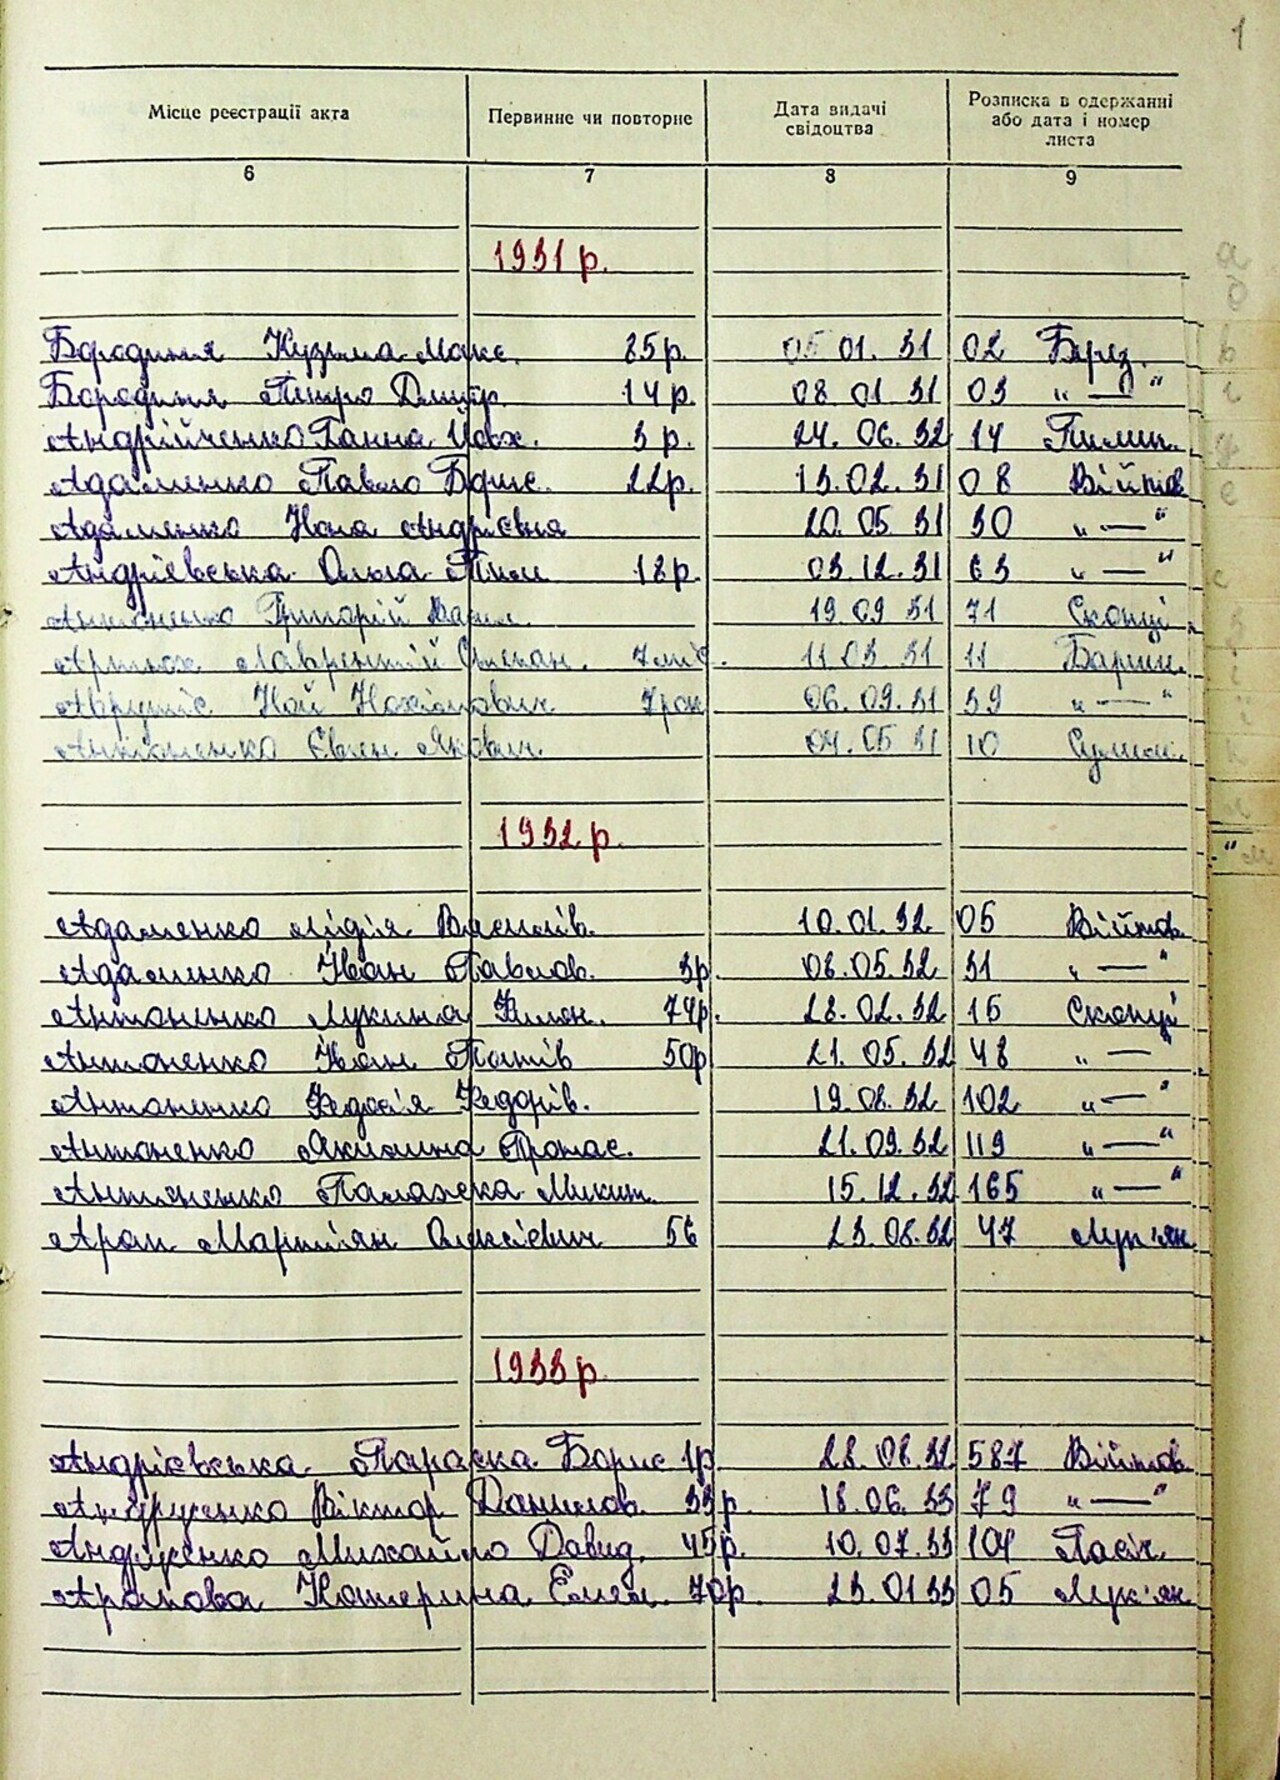 1
Місце реєстрації акта Первинне чи повторне Дата видачі свідоцтва Розписка в одержанні або дата і номер листа
6 7 8 9
1931 р.
Бородиня Кузьма Макс. 85р. 05 01. 31 02 Берез.
Бородиня Петро Дмитр. 14р. 08. 01. 31 03 „—“
Андрійченко Ганна Йос. 3 р. 24. 06. 32 14 Пилип.
Адаменко Павло Борис. 22р. 13. 02. 31 08 Війтов
Адаменко Нона Андріївна 20. 05. 31 30 „—“
Андрієвська Ольга Пил 18р. 03. 12. 31 63 „—“
Антоненко Григорій Васил. 19. 09 31 71 Скопці
Лаврентій Степан. 7міс. 11. 03. 31 11 Бариш.
Аврутіс Ной Нохімович 7рок 06. 09. 31 39 „—“
Антоненко Євген Якович. 04. 05 31 10 Сулим.
1932 р.
Адаменко Лідія Василів. 10. 01. 32 05 Війтов.
Адаменко Іван Павлов. 3р. 08. 05. 32 31 „—“
Антоненко Лукина Филон. 74р. 28. 02. 32 16 Скопці
Антоненко Іван Потап 50р 21. 05. 32 48 „—“
Антоненко Федосія Федорів. 19. 08. 32 102 „—“
Антоненко Якилина Протас. 21. 09. 32 119 „—“
Антоненко Палажка Микит. 15. 12. 32 165 „—“
Арап Мартіян Олексієвич 56 23. 08. 32 47 Лук'ян
1933 р.
Андрієвська Параска Борис 1р. 28. 08. 32 587 Війтов.
Андрусенко Віктор Данилов. 33 р. 18. 06. 33 79 „—“
Андрусенко Михайло Давид. 45р. 10. 07. 33 104 Пасіч.
Арапова Катерина Емел. 70р. 23. 01 33 05 Лук'ян.